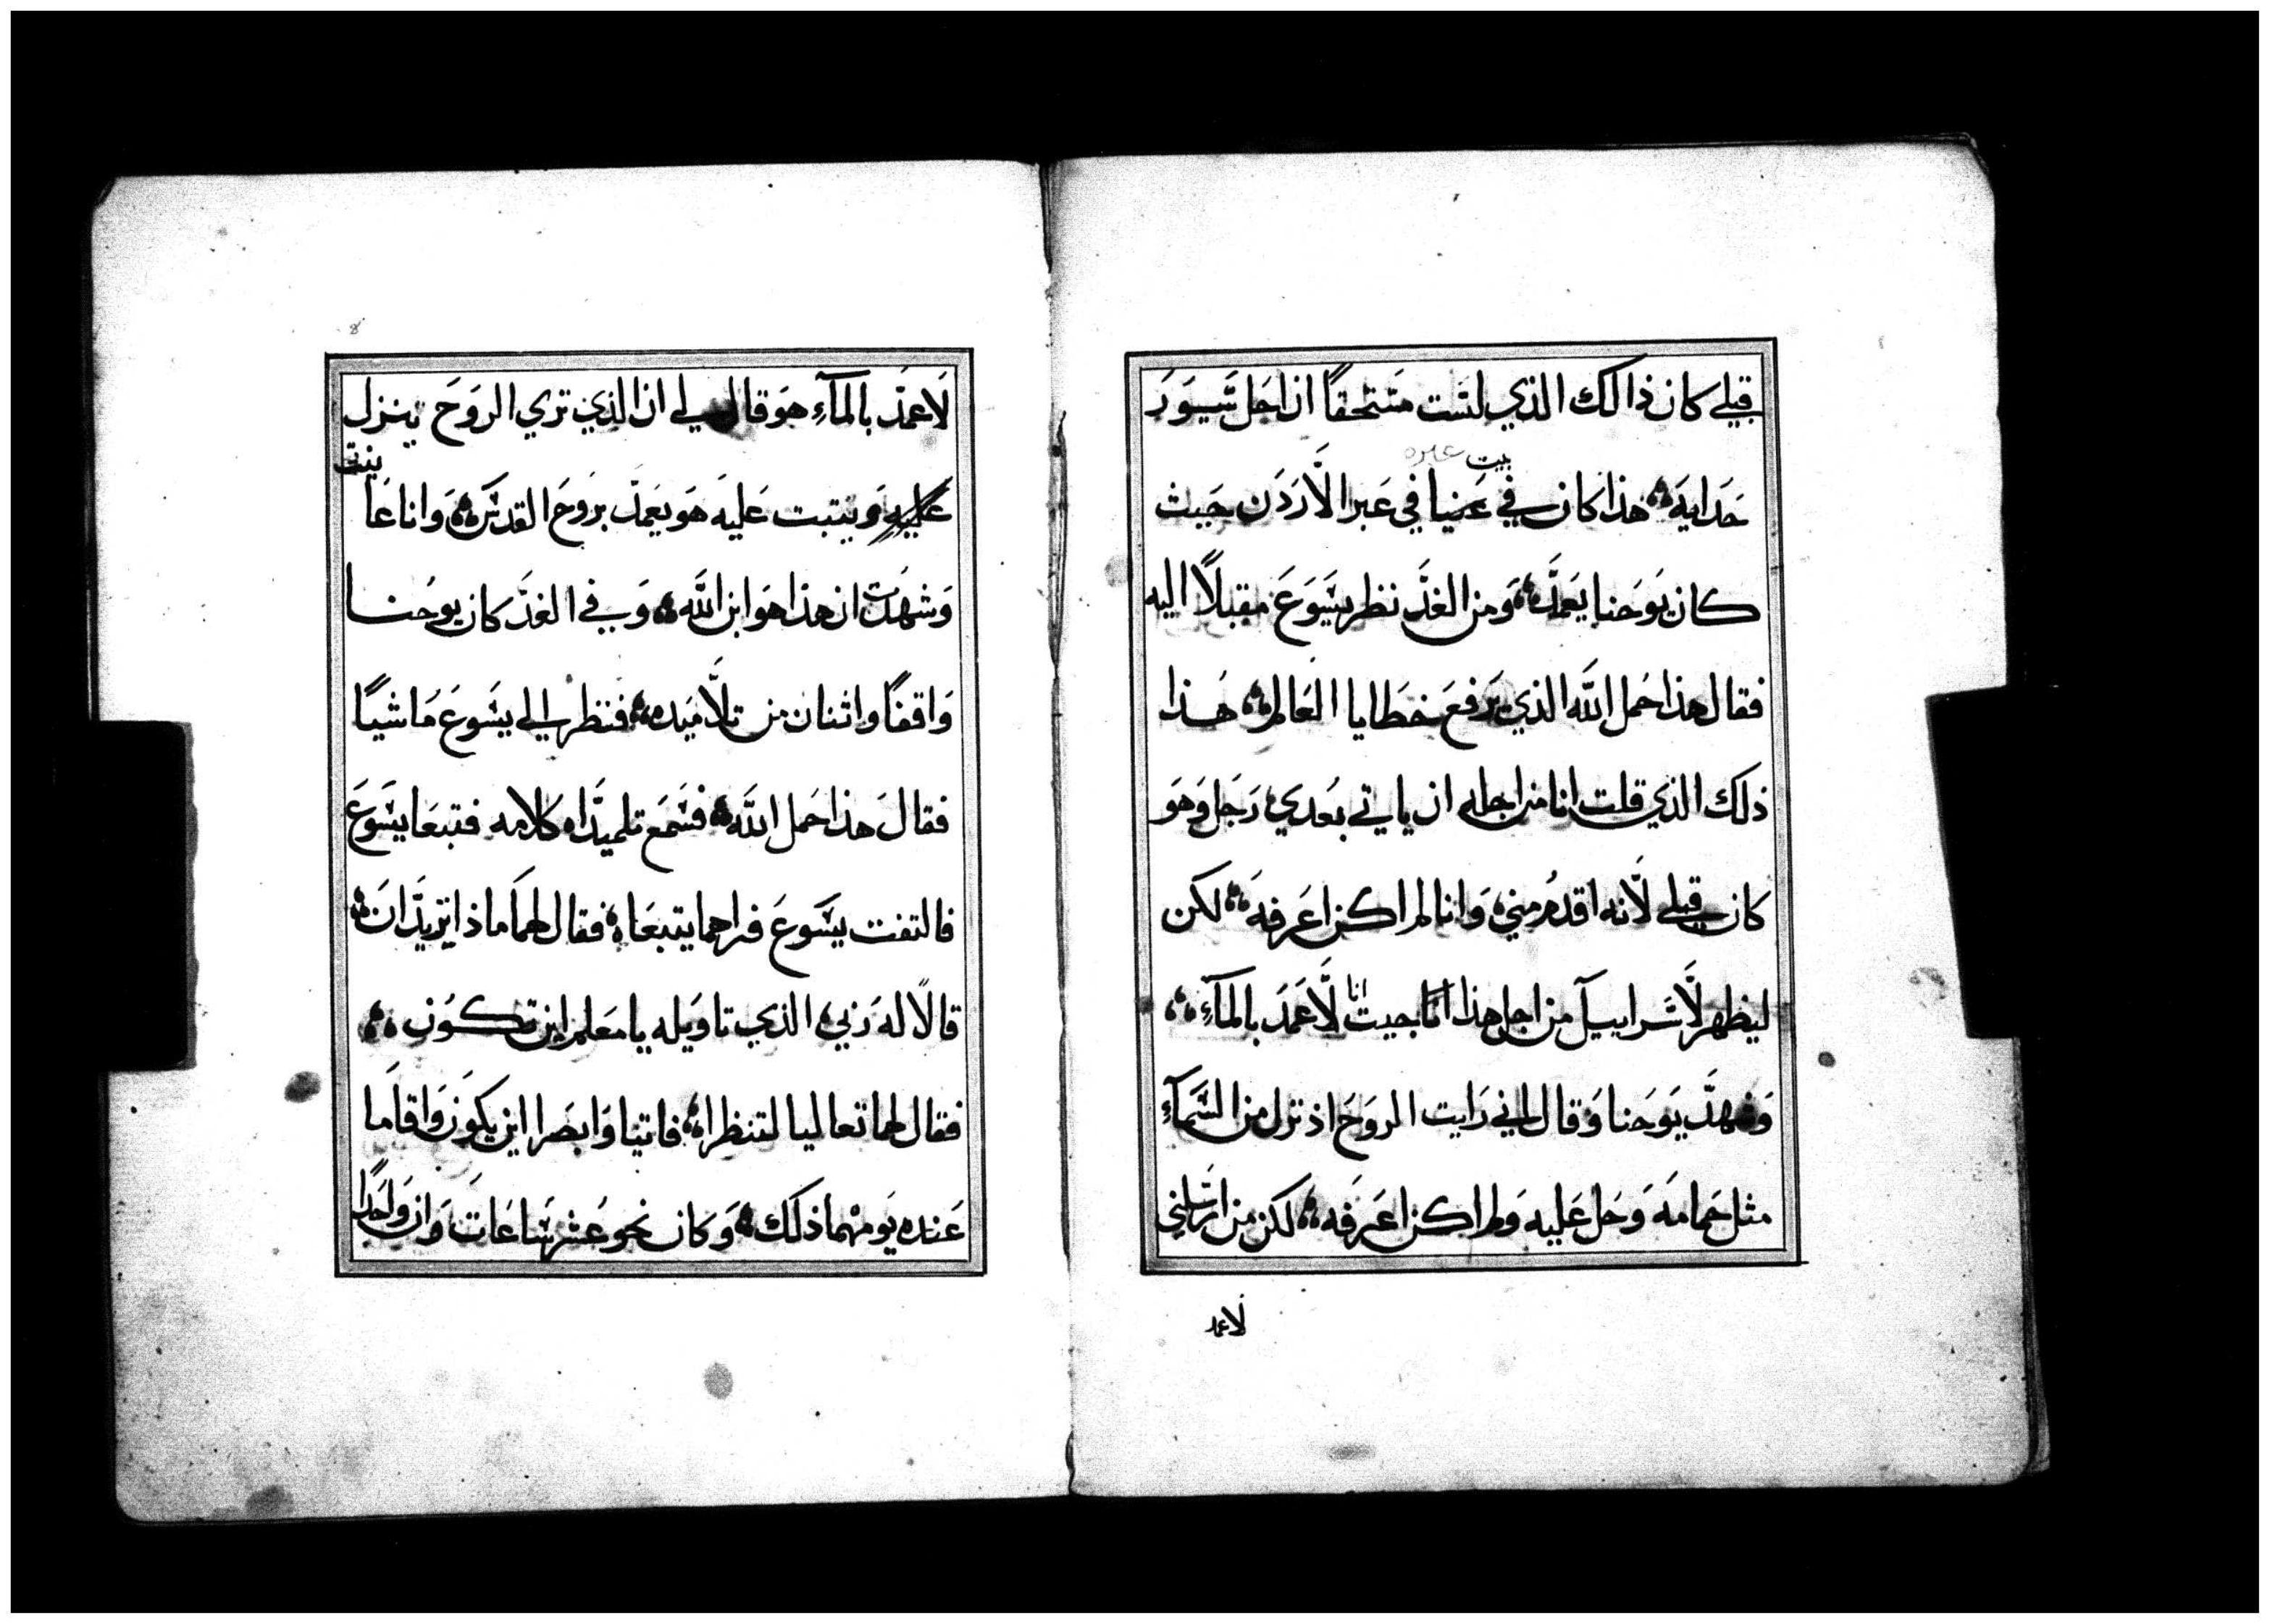 قبلي كان ذالك الذي لست مستحقاً ان احل سيور
بيت عبره
حدايه هذا كان في عنيا في عبر الأردن حيث
كان يوحنا يعمد ومن الغد نظر يسوع مقبلاً اليه
فقال هذا حمل الله الذي يرفع خطايا العالم هذا
ذلك الذي قلت انا من اجله ان ياتي بعدي رجل وهو
كان قبلي لأنه اقدم مني وانا لم اكن اعرفه لكن
ليظهر لأسراييل من اجل هذا انا جيت انا لأعمد بالمآء
وشهد يوحنا وقال اني رايت الروح اذ نزل من السمآء
مثل حمامه وحل عليه ولم اكن اعرفه لكن من ارسلني
لاعمد
8
لاعمد بالمآء هو قال لي ان الذي تري الروح ينزل
عليه ويتبت عليه هو يعمد بروح القدس وانا عاينت
وشهدت ان هذا هو ابن الله وفي الغد كان يوحنا
واقفاً واثنان من تلاميده فنظر الي يسوع ماشياً
فقال هذا حمل الله فسمع تلميداه كلامه فتبعا يسوع
فالتفت يسوع فراهما يتبعاه فقال لهما ماذا تريدان
قالا له ربي الذي تاويله يا معلم اين تكون
فقال لهما تعاليا لتنظرا فاتيا وابصرا اين يكون واقاما
عنده يومهما ذلك وكان نحو عشر ساعات وان واحداً